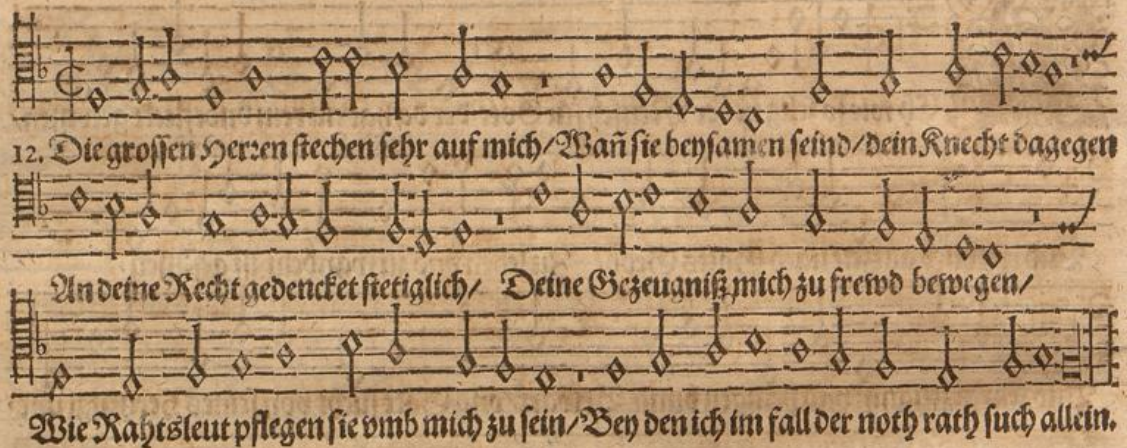 12. Die groſſen Herꝛen ſtechen ſehr auf mich/Wañ ſie beyſamen ſeind/dein Knecht dagegen
An deine Recht gedencket ſtetiglich/ Deine Gezeugniß mich zu frewd bewegen/
Wie Rahtsleut pflegen ſie vmb mich zu ſein/Bey den ich im fall der noth rath ſuch allein.